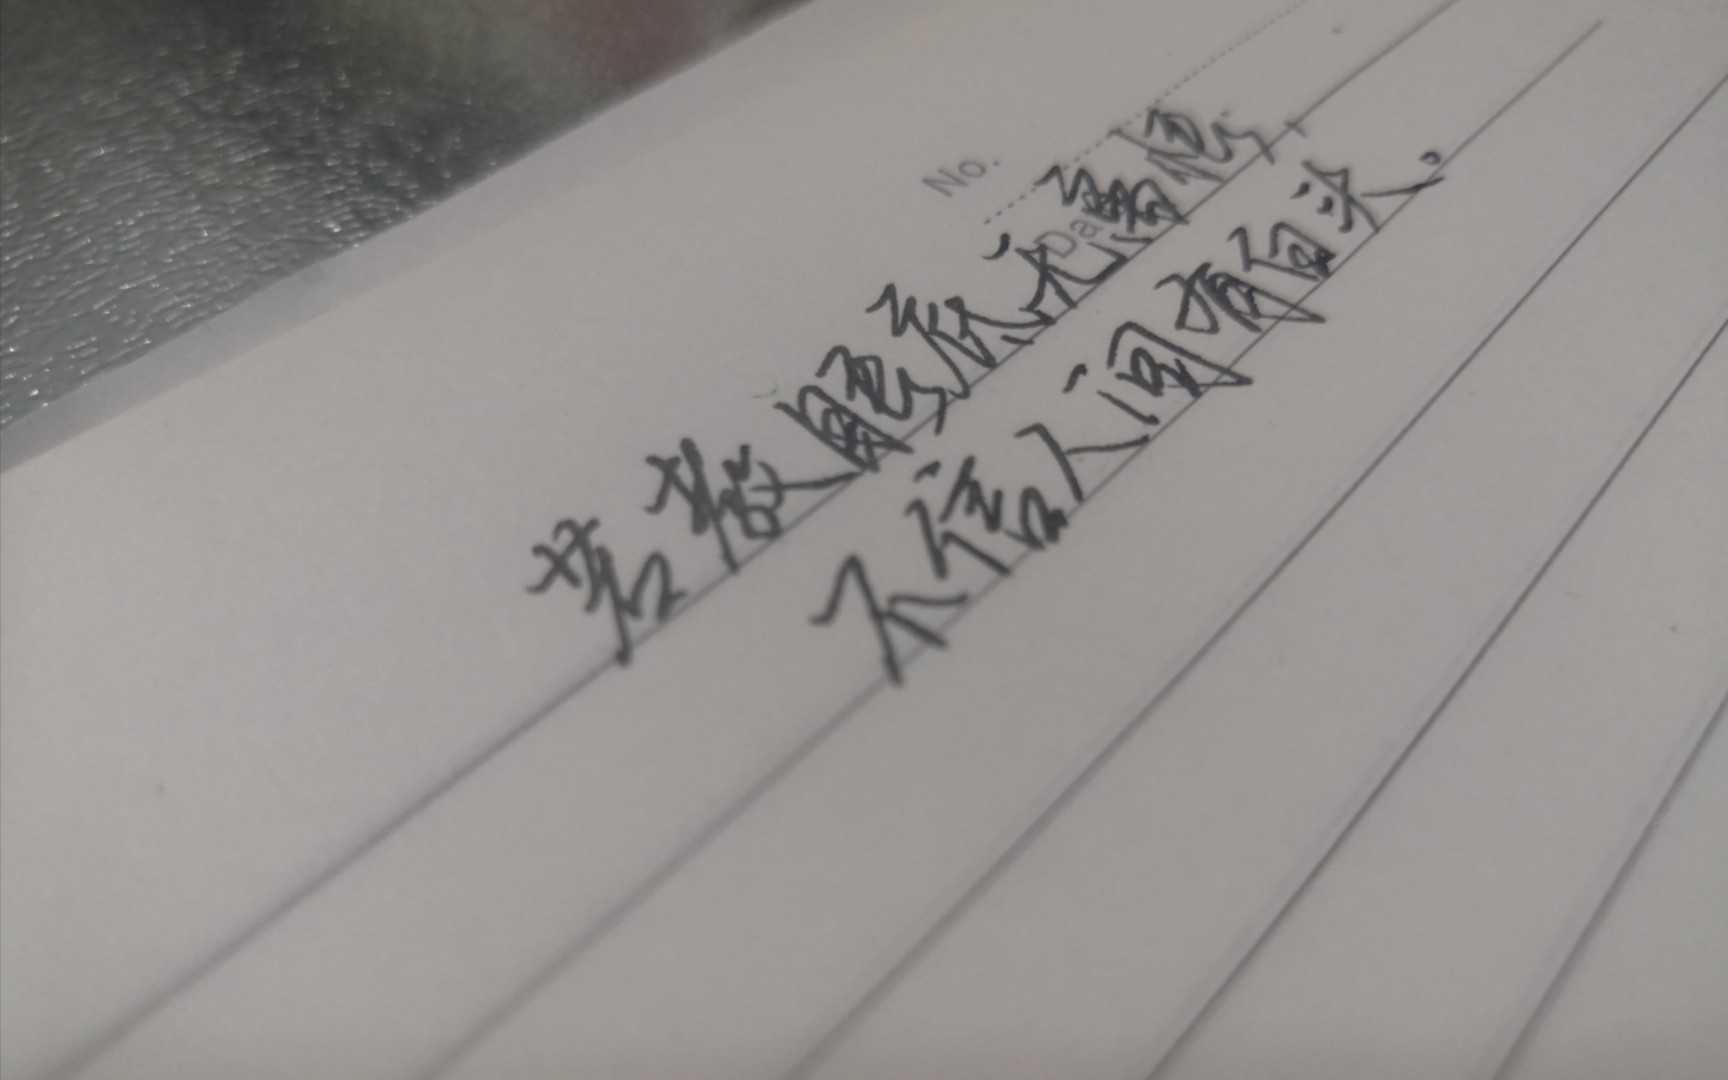 No.
Da
若教眼底无离恨,
不信人间有白头.